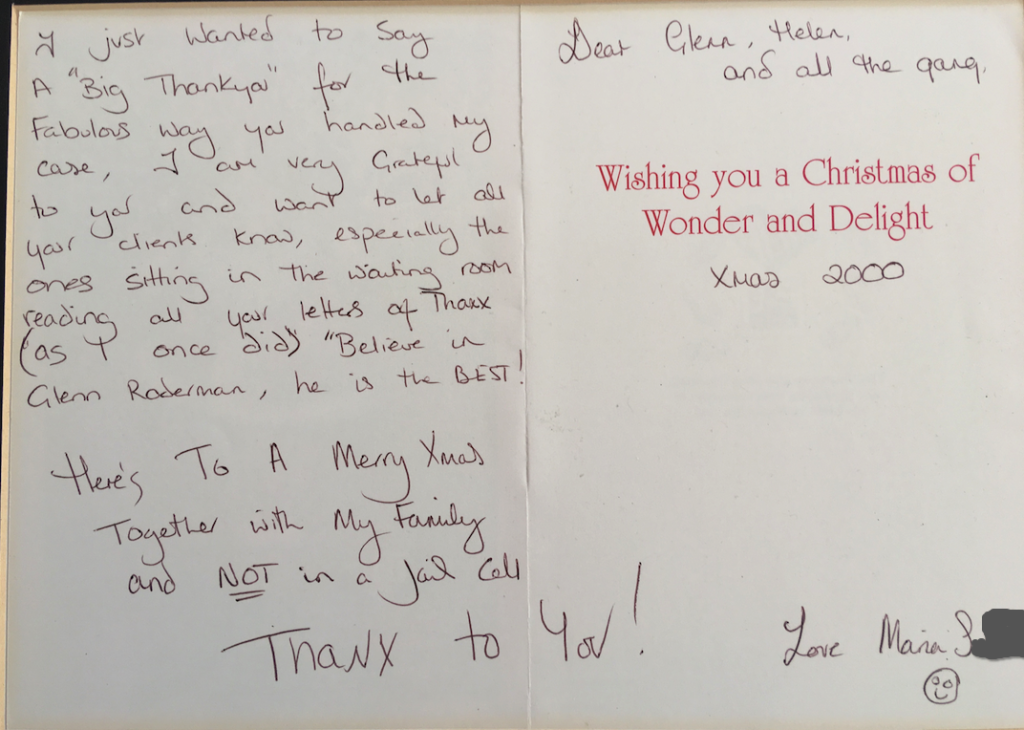 I just Wanted to Say
A "Big Thankyou" for the
Fabulous way you handled my
case, I am very Grateful
to you and want to let all
your clients know, especially the
ones sitting in the waiting room
reading all your letters of Thanx
(as I once did) "Believe in
Glenn Roderman, he is the BEST!
Here's To A Merry Xmas
Together with My Family
and NOT in a Jail Cell
THANX to YOU!
Dear Glenn, Helen,
and all the gang,
Wishing you a Christmas of
Wonder and Delight
Xmas 2000
Love Maria S